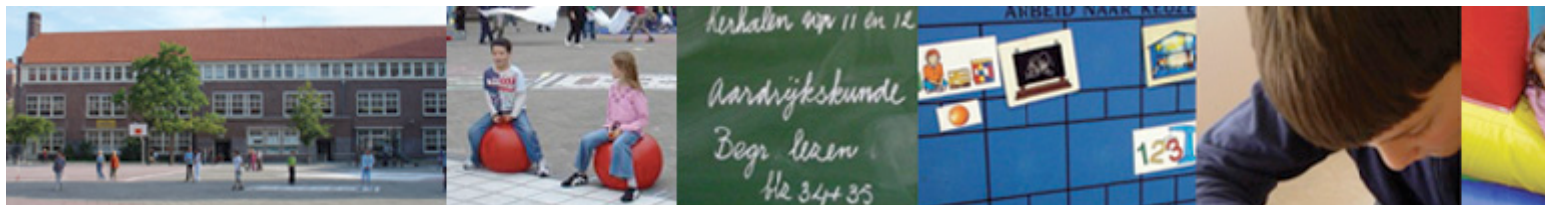 herhalen wp 11 en 12
Aardrijkskunde
Begr lezen
blz 34 + 35
ARBEID NAAR KEUZE
123